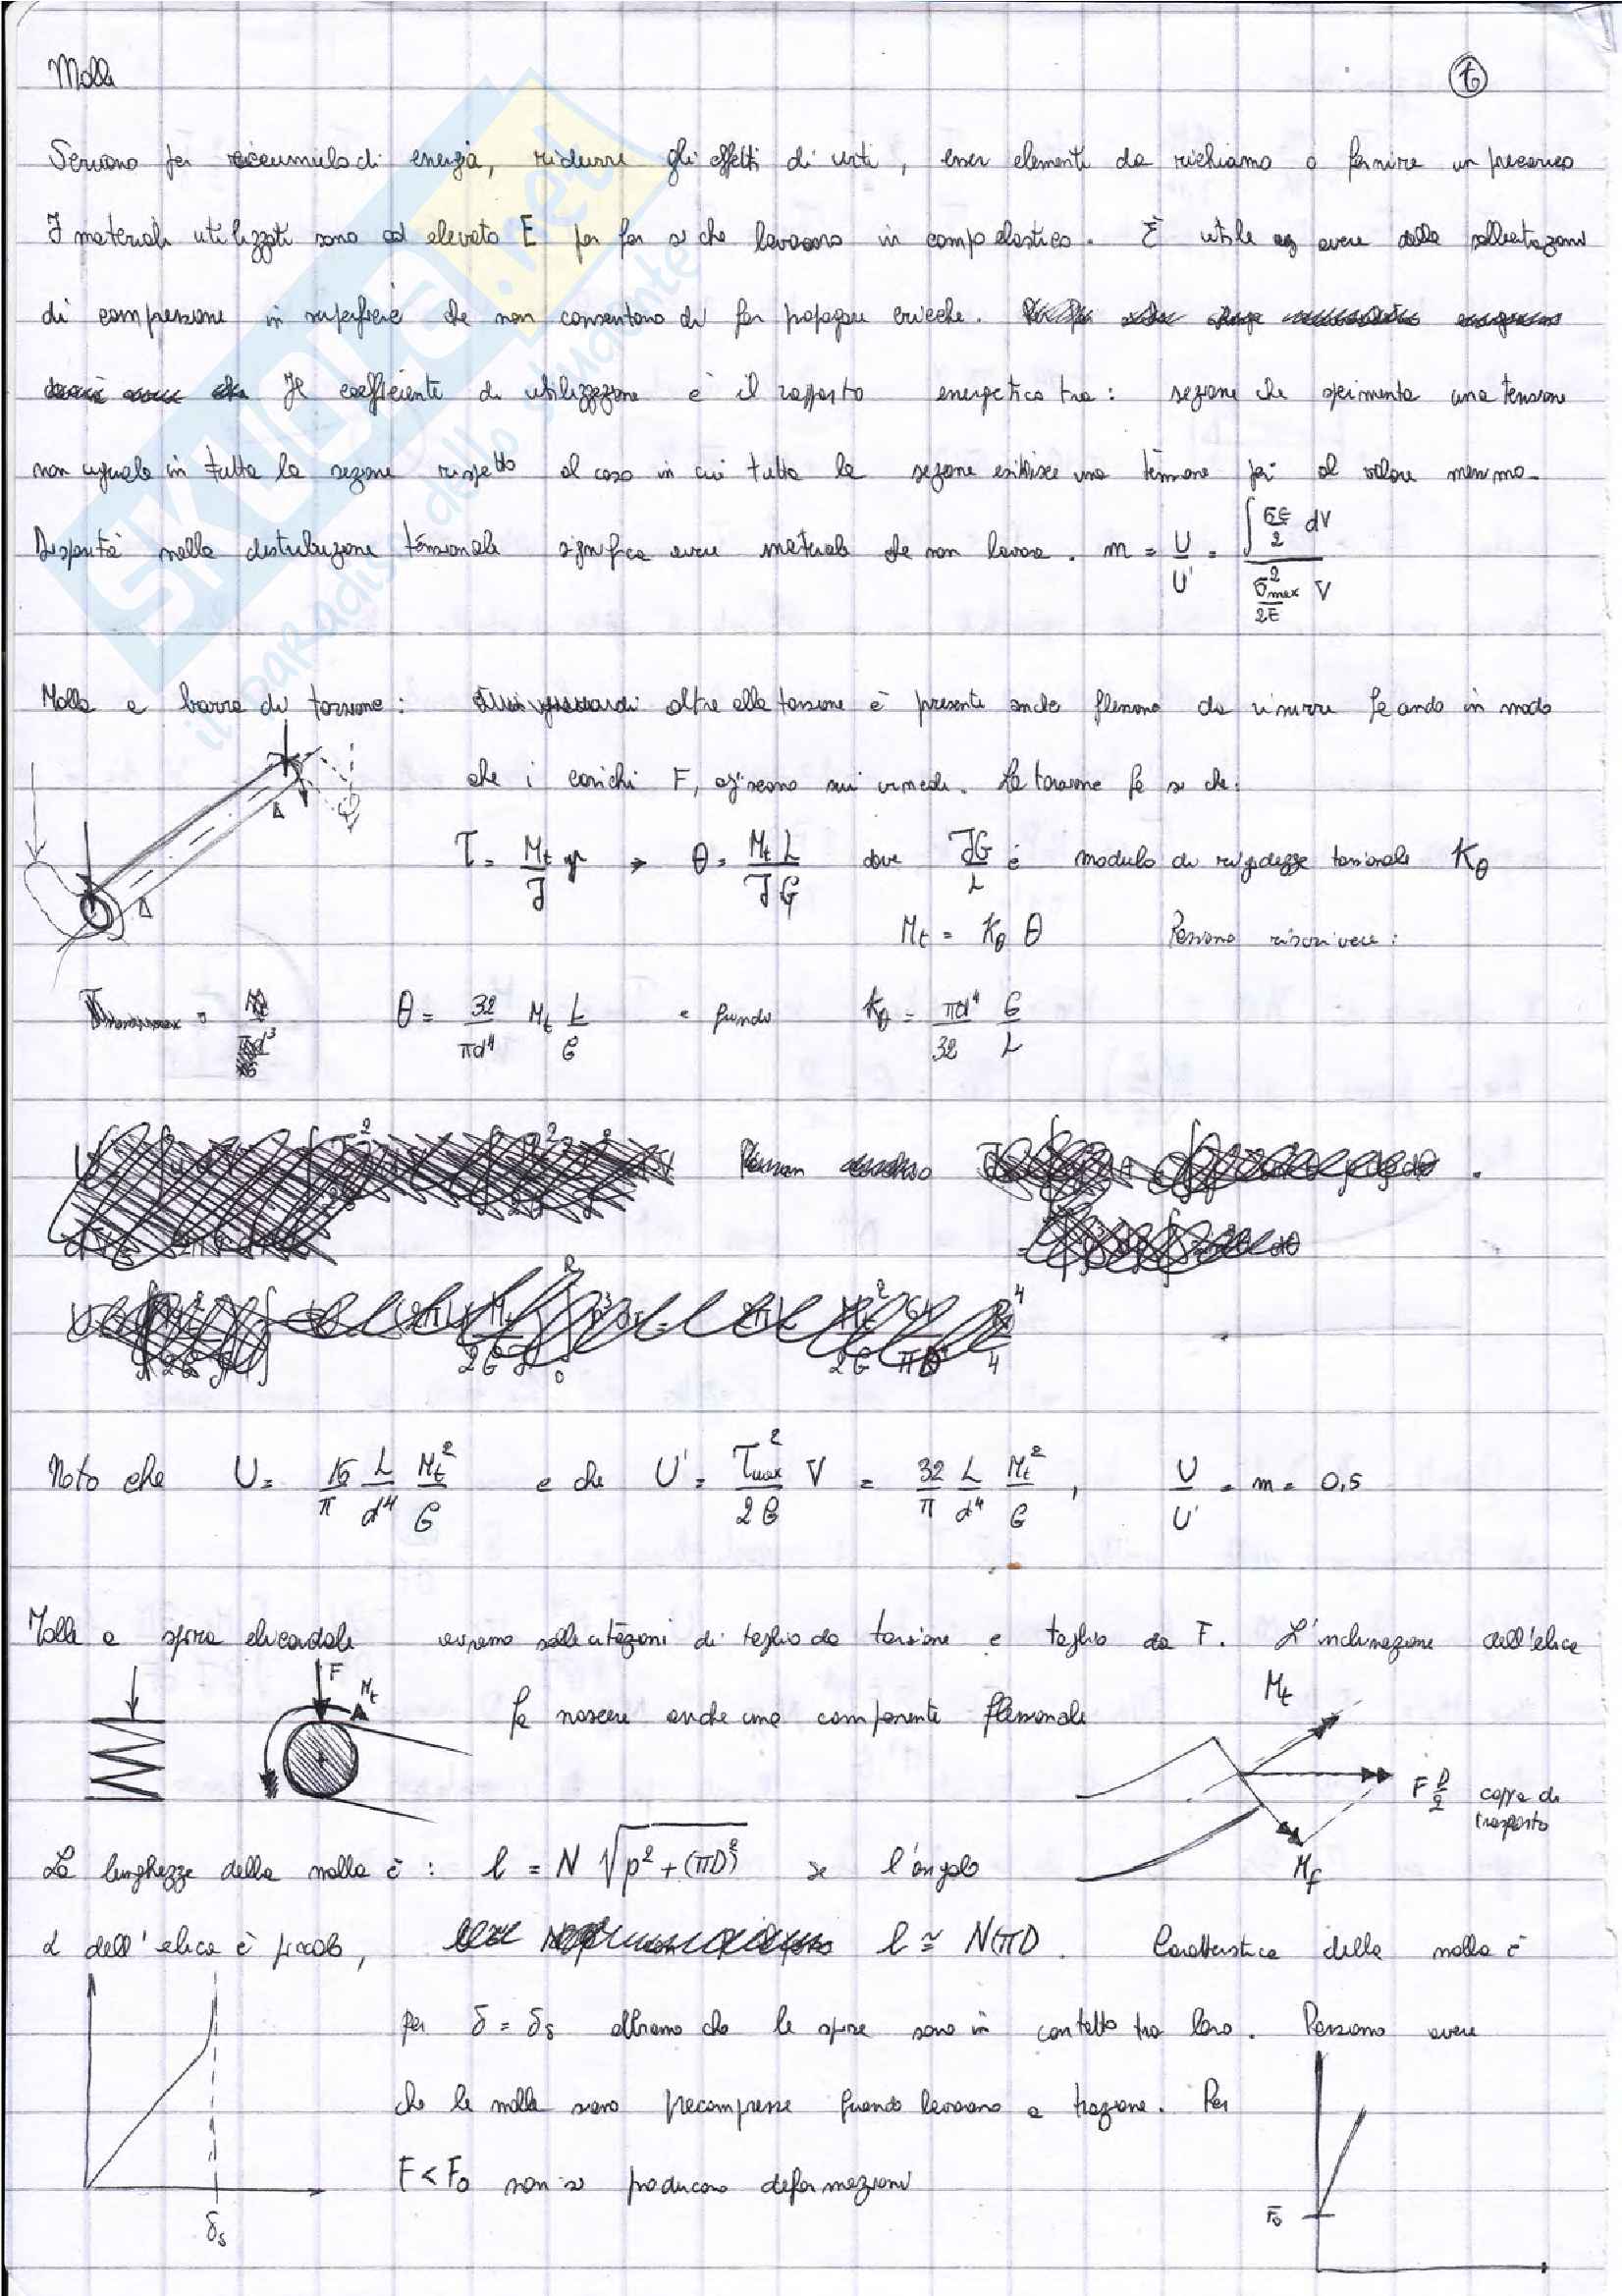 Molle
Servono per accumulo di energia, ridurre gli effetti di urti, esser elementi da richiamo o fornire un precarico
I materiali utilizzati sono ad elevato E per far si che lavorano in campo elastico. È utile avere delle sollecitazioni
di compressione in superficie che non consentono di far propagare cricche.
Il coefficiente di utilizzazione è il rapporto energetico tra: sezione che sperimenta una tensione
non uguale in tutta la sezione rispetto al caso in cui tutta la sezione esibisce una tensione pari al valore massimo.
Disparità nella distribuzione tensionale significa avere materiale che non lavora. m = U/U' = ∫ σε/2 dV / (σ²max/2E V)
Molle a barra di torsione: oltre alla torsione è presente anche flessione da ridurre facendo in modo
che i carichi F, agiscono sui vincoli. La torsione fa si che:
τ = Mt/J r → θ = Mt L/JG dove JG/L è modulo di rigidezza torsionale Kθ
Mt = Kθ θ Possiamo riscrivere:
θ = 32/πd⁴ Mt L/G e quindi Kθ = πd⁴/32 G/L
Noto che U = 16/π L/d⁴ Mt²/G e che U' = τ²max/2G V = 32/π L/d⁴ Mt²/G , U/U' = m = 0,5
Molle a spira elicoidale avremo sollecitazioni di taglio da torsione e taglio da F. L'inclinazione dell'elica
F
Mt
fa nascere anche una componente flessionale
Mt
F D/2 coppia di
trasporto
Mf
La lunghezza della molla è: l = N √(p² + (πD)²) se l'angolo
α dell'elica è piccolo, l ≅ NπD. Caratteristica della molla è
per δ = δs abbiamo che le spire sono in contatto tra loro. Possiamo avere
che le molle siano precompresse quando lavorano a trazione. Per
F < F₀ non si producono deformazioni
δs
F₀
SKUOLA.net
il paradiso dello studente